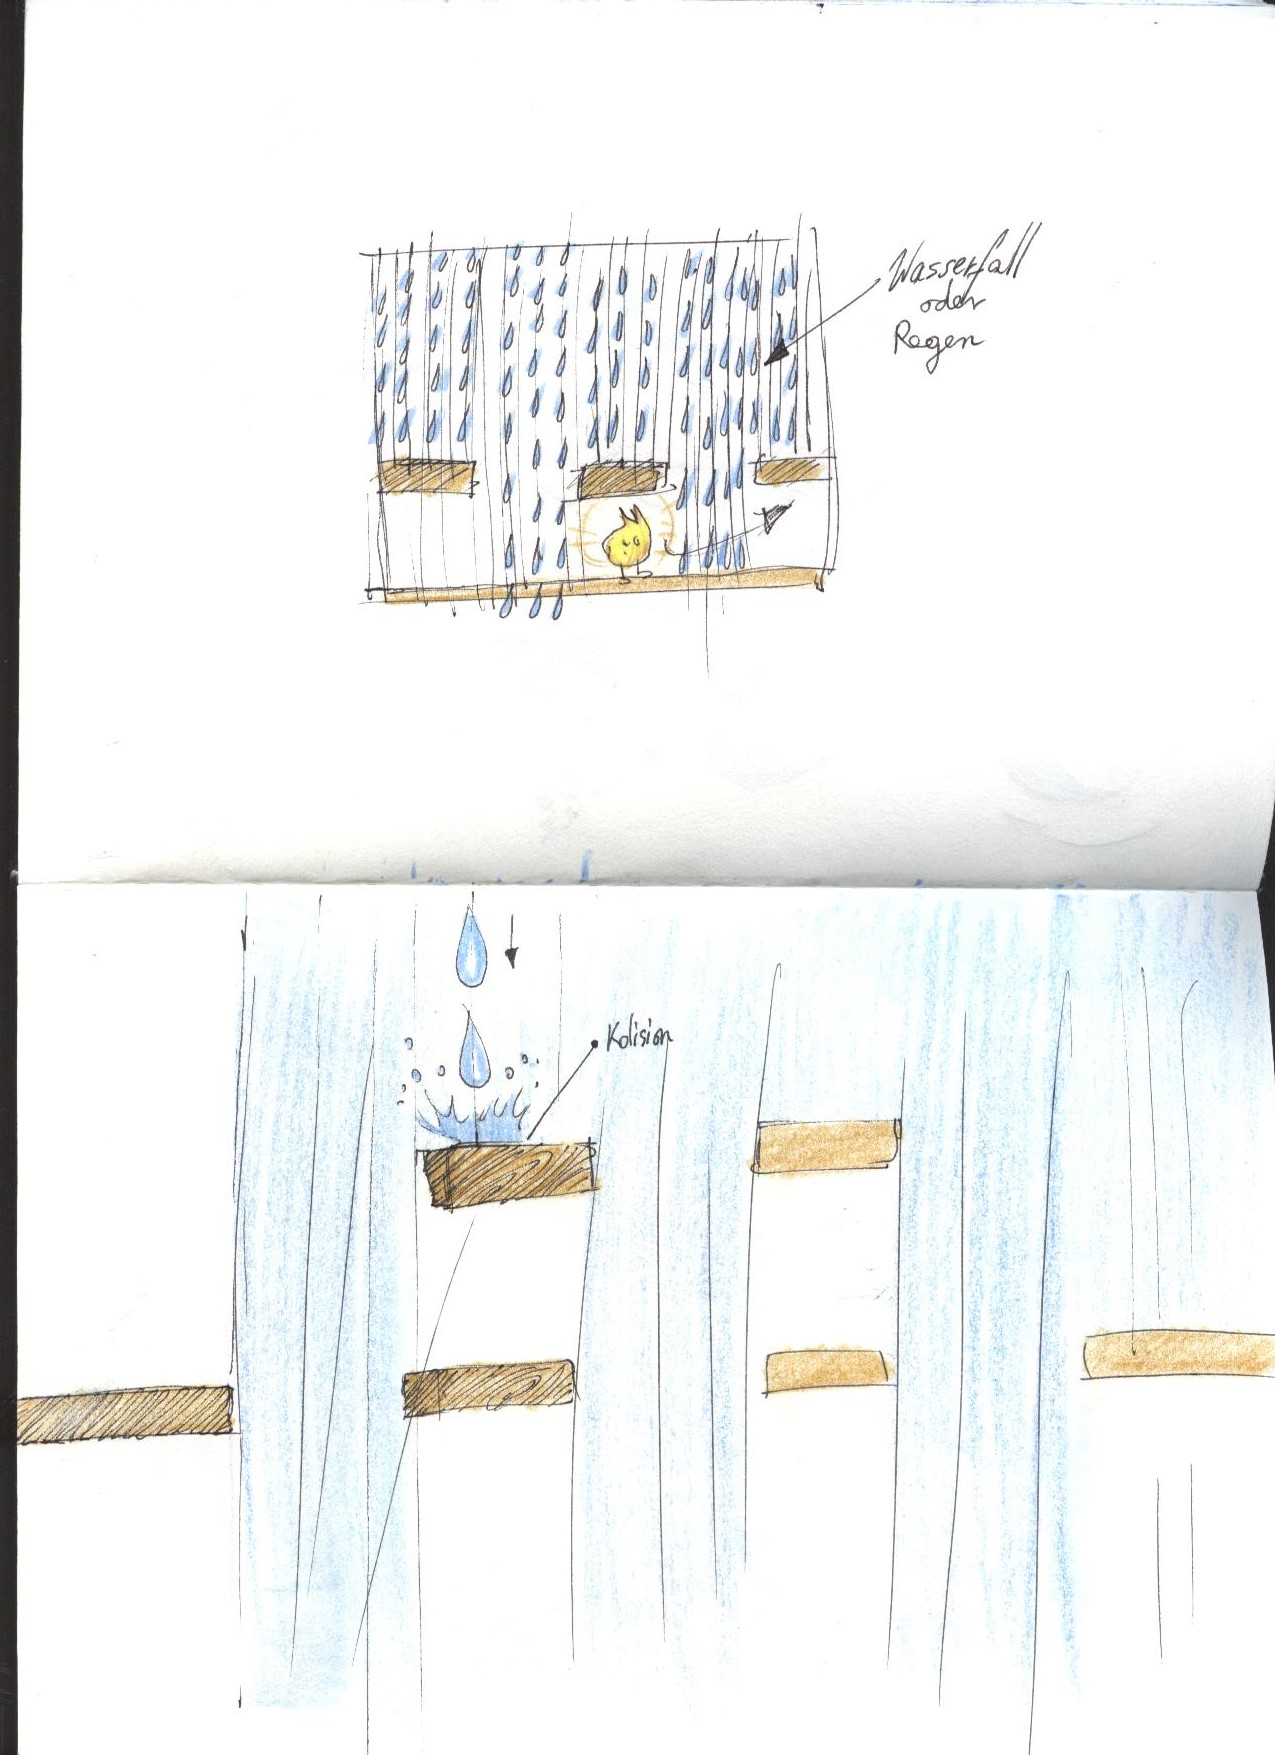 Wasserfall
oder
Regen
Kolision